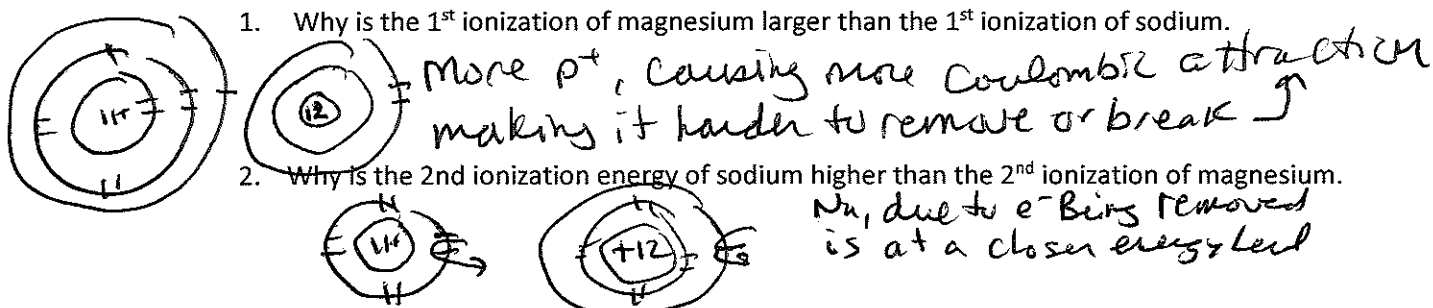 1. Why is the 1st ionization of magnesium larger than the 1st ionization of sodium.
11+ 12 More p+, causing more Coulombic attraction
making it harder to remove or break
2. Why is the 2nd ionization energy of sodium higher than the 2nd ionization of magnesium.
11+ +12 Na, due to e- Being removed
is at a closer energy level